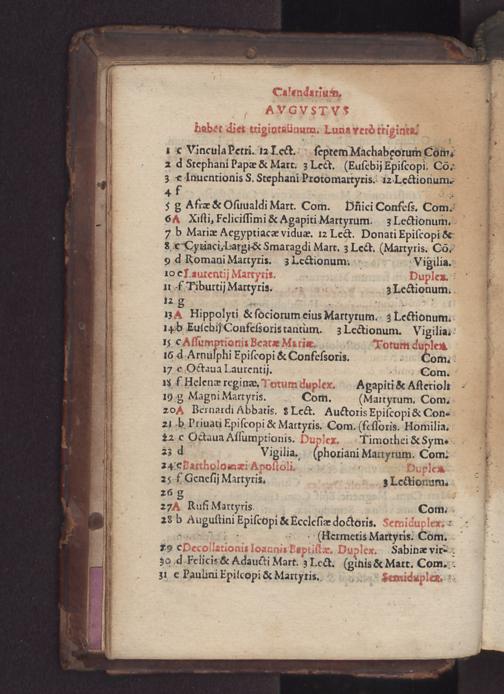 Calendarium.
AVGVSTVS
habet dies trigintaūnum. Luna verò triginta.
1 c Vincula Petri. 12 Lect. septem Machabęorum Com.
2 d Stephani Papæ & Mart. 3 Lect. (Eusebij Episcopi. Cō.
3 e Inuentionis S. Stephani Protomartyris. 12 Lectionum.
4 f
5 g Afræ & Osuualdi Mart. Com. Dñici Confess. Com.
6 A Xisti, Felicissimi & Agapiti Martyrum. 3 Lectionum.
7 b Mariæ Aegyptiacæ viduæ. 12 Lect. Donati Episcopi &
8 c Cyriaci, Largi & Smaragdi Mart. 3 Lect. (Martyris. Cō.
9 d Romani Martyris. 3 Lectionum. Vigilia.
10 e Laurentij Martyris. Duplex.
11 f Tiburtij Martyris. 3 Lectionum.
12 g
13 A Hippolyti & sociorum eius Martyrum. 3 Lectionum.
14 b Eusebij Confessoris tantùm. 3 Lectionum. Vigilia.
15 c Assumptionis Beatæ Mariæ. Totum duplex.
16 d Arnulphi Episcopi & Confessoris. Com.
17 e Octaua Laurentij. Com.
18 f Helenæ reginæ, Totum duplex. Agapiti & Asterioli
19 g Magni Martyris. Com. (Martyrum. Com.
20 A Bernardi Abbatis. 8 Lect. Auctoris Episcopi & Con-
21 b Priuati Episcopi & Martyris. Com. (fessoris. Homilia.
22 c Octaua Assumptionis. Duplex. Timothei & Sym-
23 d Vigilia. (phoriani Martyrum. Com.
24 e Bartholomæi Apostoli. Duplex
25 f Genesij Martyris. 3 Lectionum.
26 g
27 A Rufi Martyris Com.
28 b Augustini Episcopi & Ecclesiæ doctoris. Semiduplex.
(Hermetis Martyris. Com.
29 c Decollationis Ioannis Baptistæ. Duplex. Sabinæ vir-
30 d Felicis & Adaucti Mart. 3 Lect. (ginis & Matt. Com.
31 e Paulini Episcopi & Martyris. Semiduplex.